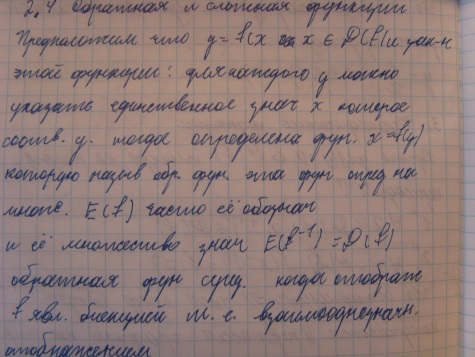 2.4 Обратная и сложная функции
Предположим что y = f(x x ∈ D(f) и зак-н
этой функции: для каждого y можно
указать единственное знач x которое
соотв. y. тогда определена фун. x = f(y)
которую назыв обр. фун. эта фун опред на
множ. E(f) часто её обознач
и её множество знач E(f⁻¹) = D(f)
обратная фун сущ. когда отображ
f явл. биекцией т. е. взаимооднозначн.
отображением